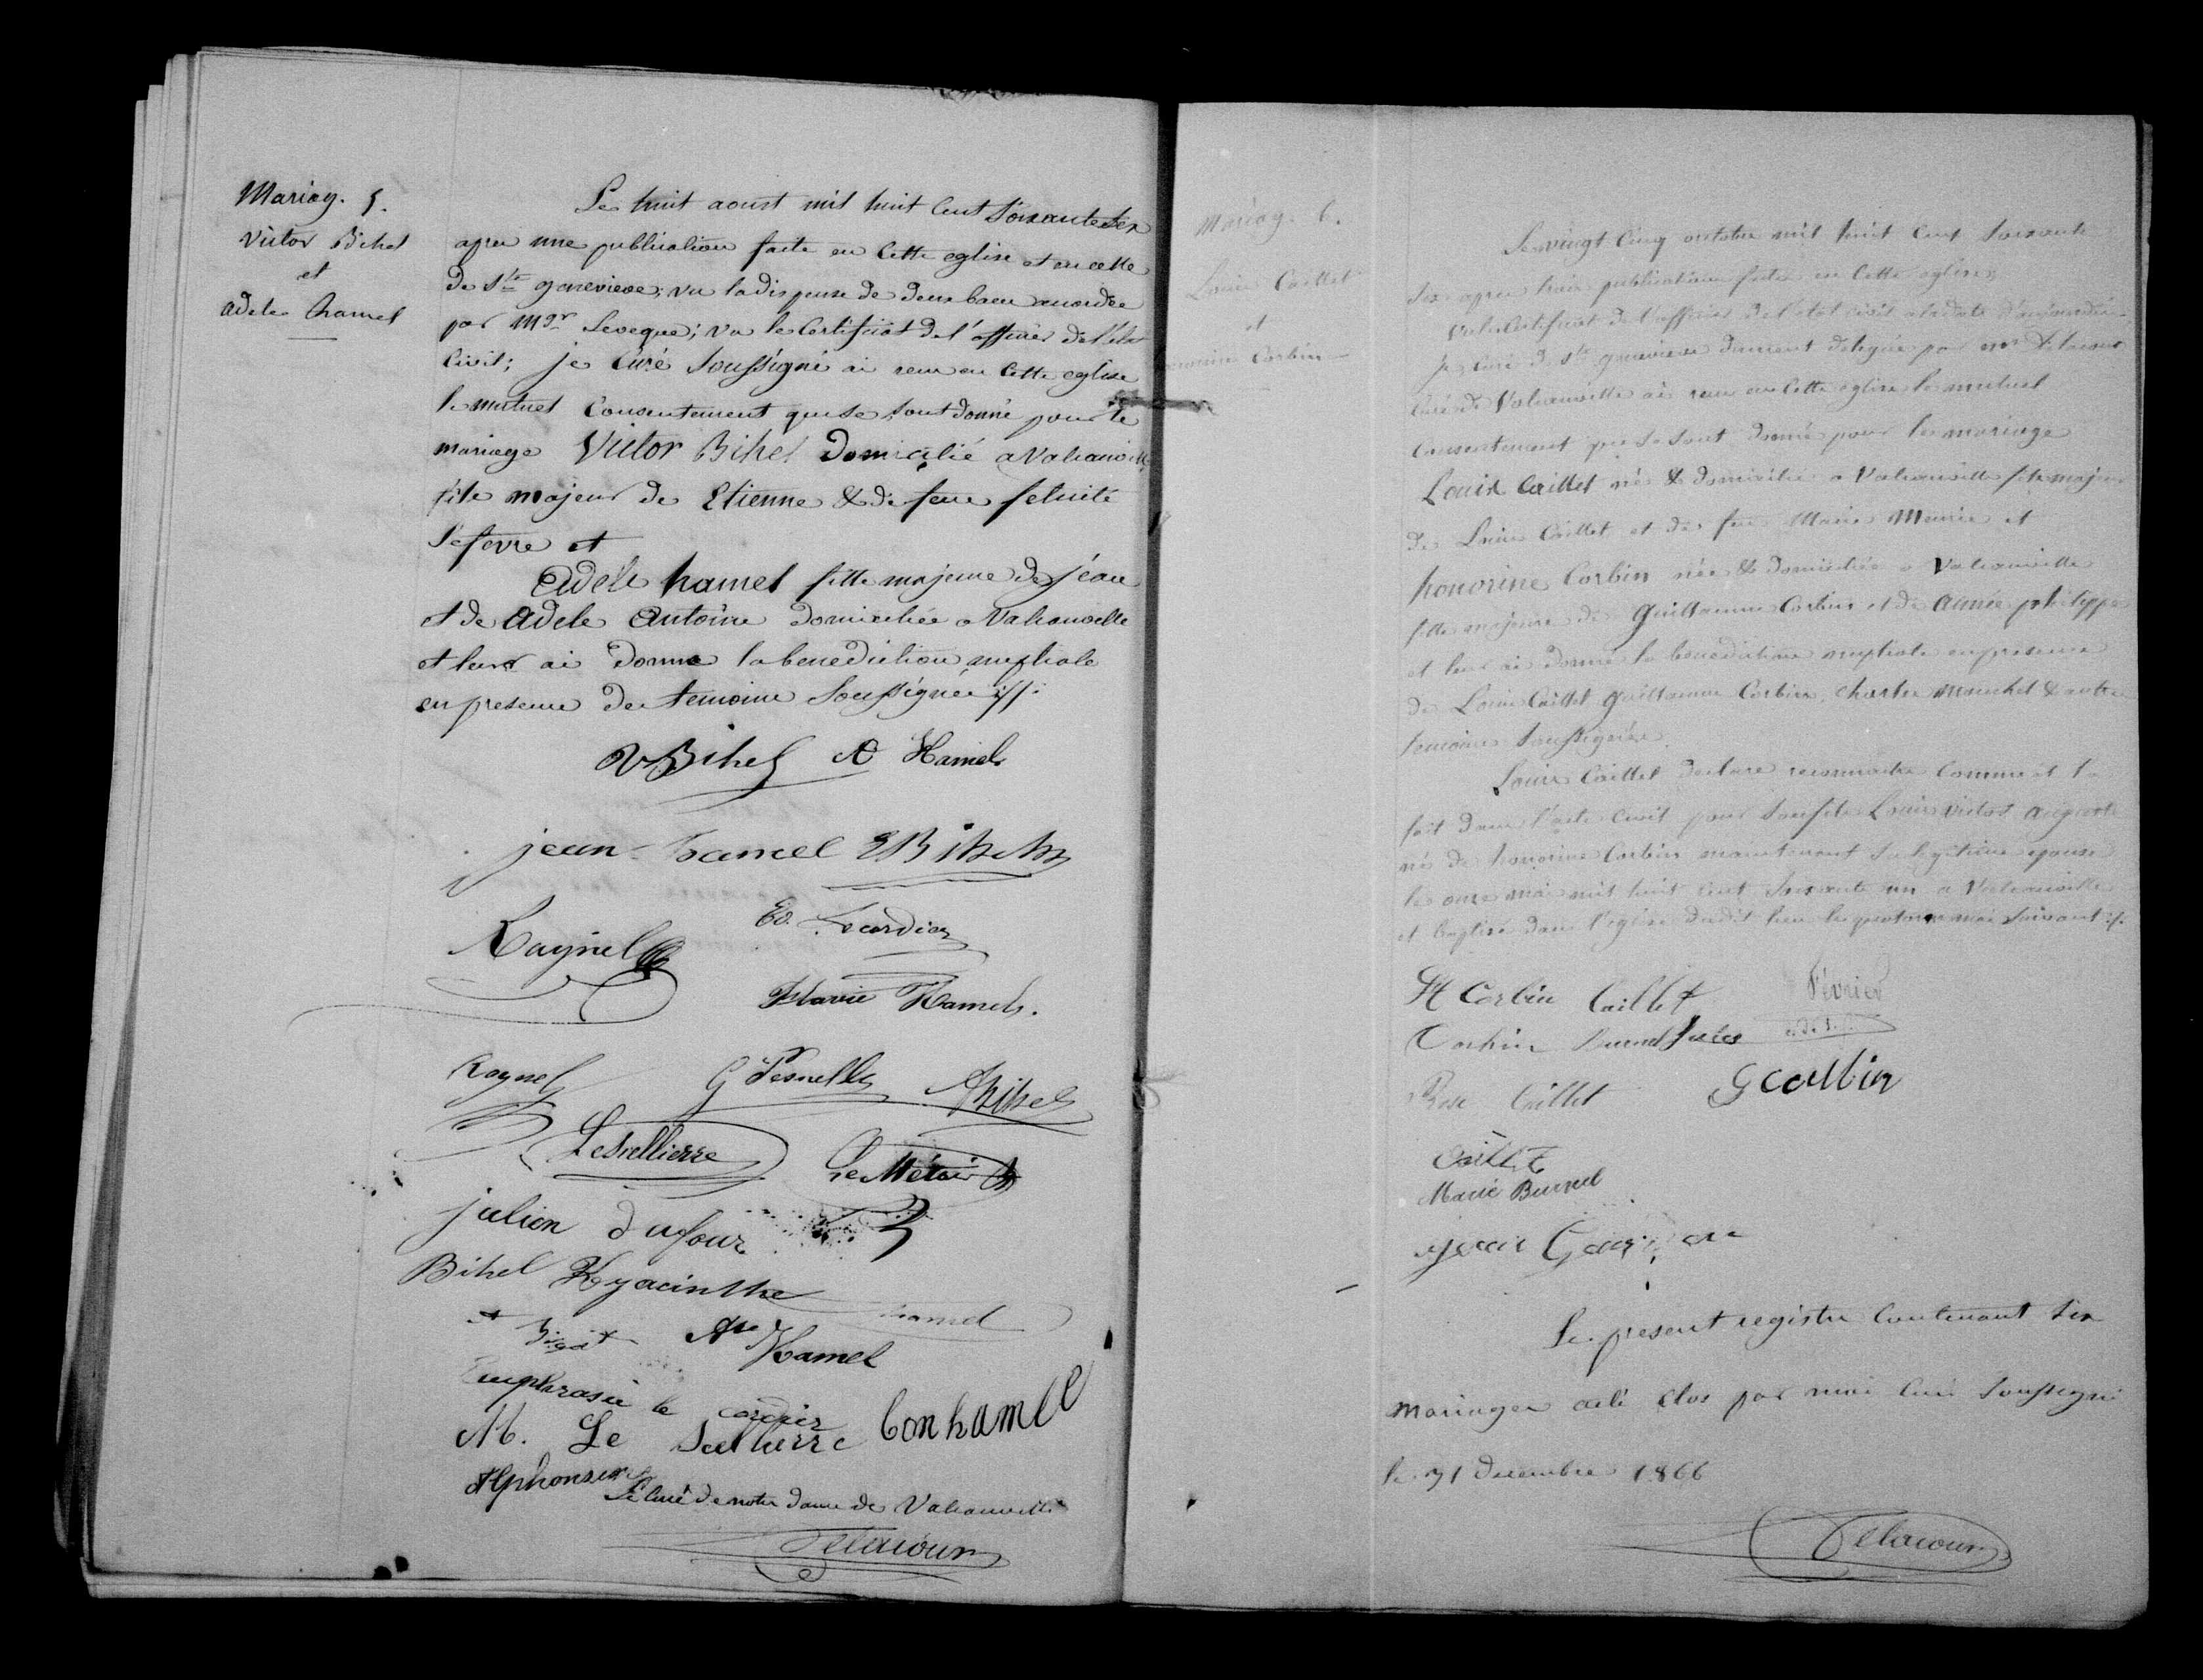 Mariag. 5.
Victor Bihel
et
adele hamel
Le huit aoust mil huit Cent Soixante Six
apres une publication faite en Cette eglise et en celle
de Ste genevieve; vu la dispense de deux bans accordée
par Mgr Leveque; vu le Certificat de l'officier de l'état
Civil; je Curé Soussigné ai recu en Cette eglise
le mutuel Consentement que se sont donné pour le
mariage Victor Bihel Domicilié a Valcanville
fils majeur de Etienne & de feue felicité
Lefevre et
Adele hamel fille majeure de jean
et de Adele Antoine Domiciliée a Valcanville
et leur ai Donné la benediction nuptiale
en presence des temoins Soussignés
V Bihel A Hamel
jean hamel E Bihel
Raynel Ed. Lecardier
Flavie Hamel.
Raynel G Pesnelle A Bihel
Le Sellierre Le Métais
julien dufour
Bihel Hyacinthe
hamel
Hamel
Euphrasie le cordier
M. Le Sellierre Bon hamel
Alphonsine
Le Curé de notre dame de Valcanville
Delacour
Mariag. 6.
Louis Caillet
et
Corbin
Le vingt Cinq octobre mil huit Cent Soixante
Six apres trois publications faites en Cette eglise
vu le Certificat de l'officier de l'état civil
je, curé de Ste genevieve dument delegué par mr Delacour
Curé de Valcanville ai recu en Cette eglise le mutuel
Consentement que se sont donné pour le mariage
Louis Caillet né & domicilié a Valcanville fils majeur
de Louis Caillet et de feu Marie et
honorine Corbin née & domiciliée a Valcanville
fille majeure de Guillaume Corbin et de aimée philippe
et leur ai donné la benediction nuptiale en presence
de Louis Caillet guillaume Corbin, Charles & autres
temoins Soussignés
Louis Caillet declare reconnoitre Comme il l'a
fait dans l'acte Civil pour Son fils Louis victor auguste
né de honorine Corbin maintenant Sa legitime epouse
le onze mai mil huit Cent Soixante un a Valcanville
et baptisé dans l'eglise dudit lieu le quatorze mai Suivant
H Corbin Caillet Février
Corbin Burnel Jules
Rose Caillet G Corbin
Caillet
Marie Burnel
Le present registre Contenant Six
mariages a été Clos par moi Curé Soussigné
le 31 decembre 1866
Delacour